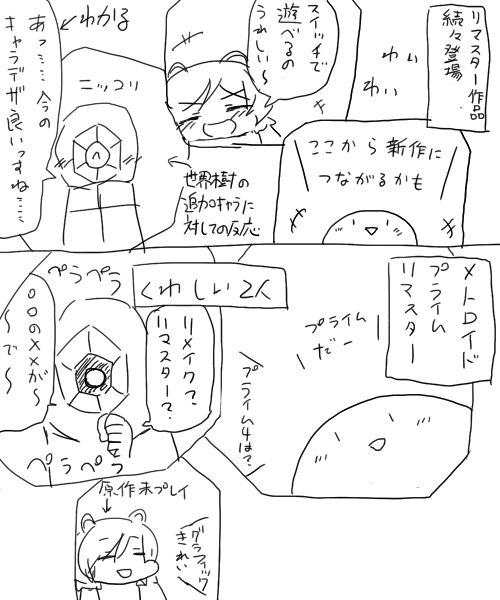 リマスター作品
続々登場
わぃ
わぃ
ここから新作に
つながるかも
スイッチで
遊べるの
うれしい〜
世界樹の
追加キャラに
対しての反応
ニッコリ
わかる
あっ……今の
キャラデザ良いっすね……
メトロイド
プライム
リマスター
プライム
だー
プライム4は?
くわしい2人
リメイク?
リマスター?
ペラペラ
○○の××が〜
〜で〜
ペラペラ
原作未プレイ
グラフィック
きれい